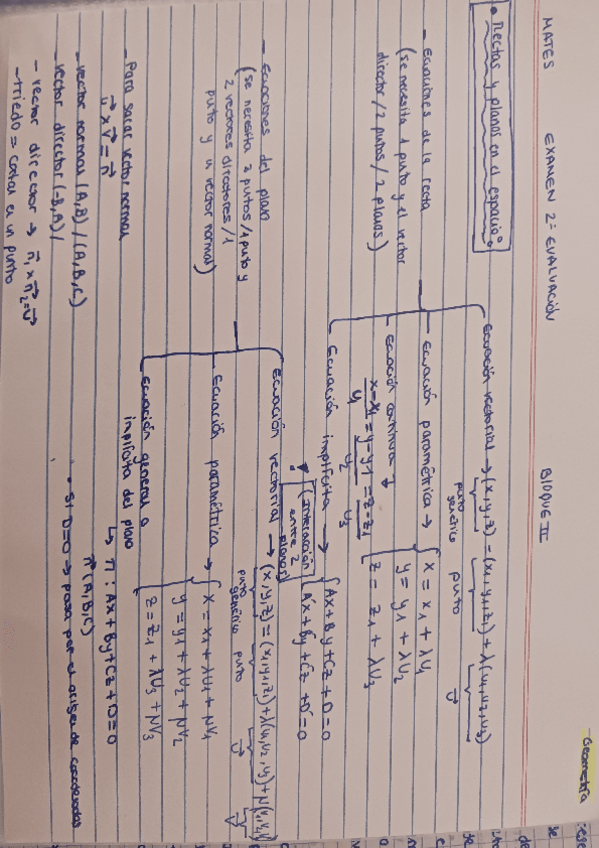 MATES EXAMEN 2ª EVALUACIÓN BLOQUE II
-Geometría
• Rectas y planos en el espacio:
- Ecuaciones de la recta
(se necesita 1 punto y el vector
director / 2 putos / 2 planos)
Ecuación vectorial → (x,y,z) = (x1,y1,z1) + λ(u1,u2,u3)
puto genérico puto u→
Ecuación paramétrica → { x = x1 + λu1
y = y1 + λu2
z = z1 + λu3
Ecuación continua →
x-x1/u1 = y-y1/u2 = z-z1/u3
Ecuación implícita → { Ax+By+Cz+D=0
A'x+By+Cz+D'=0
(Interación
entre 2
planos)
- Ecuaciones del plano
(se necesita 3 putos / 1 puto y
2 vectores directores / 1
puto y u vector normal)
Ecuación vectorial → (x,y,z) = (x1,y1,z1) + λ(u1,u2,u3) + μ(v1,v2,v3)
puto genérico puto u→ v→
Ecuación paramétrica → { x = x1 + λu1 + μv1
y = y1 + λu2 + μv2
z = z1 + λu3 + μv3
Ecuación general o
implícita del plano
↳ π : Ax+By+Cz+D=0
π→ (A,B,C)
• Si D=0 → pasa por el origen de coordenadas
- Para sacar vector normal
u→ x v→ = n→
- vector normal (A,B) / (A,B,C)
- vector director (-B,A) /
- vector director → n→1 x n→2 = u→
- triedo = cortan en un punto